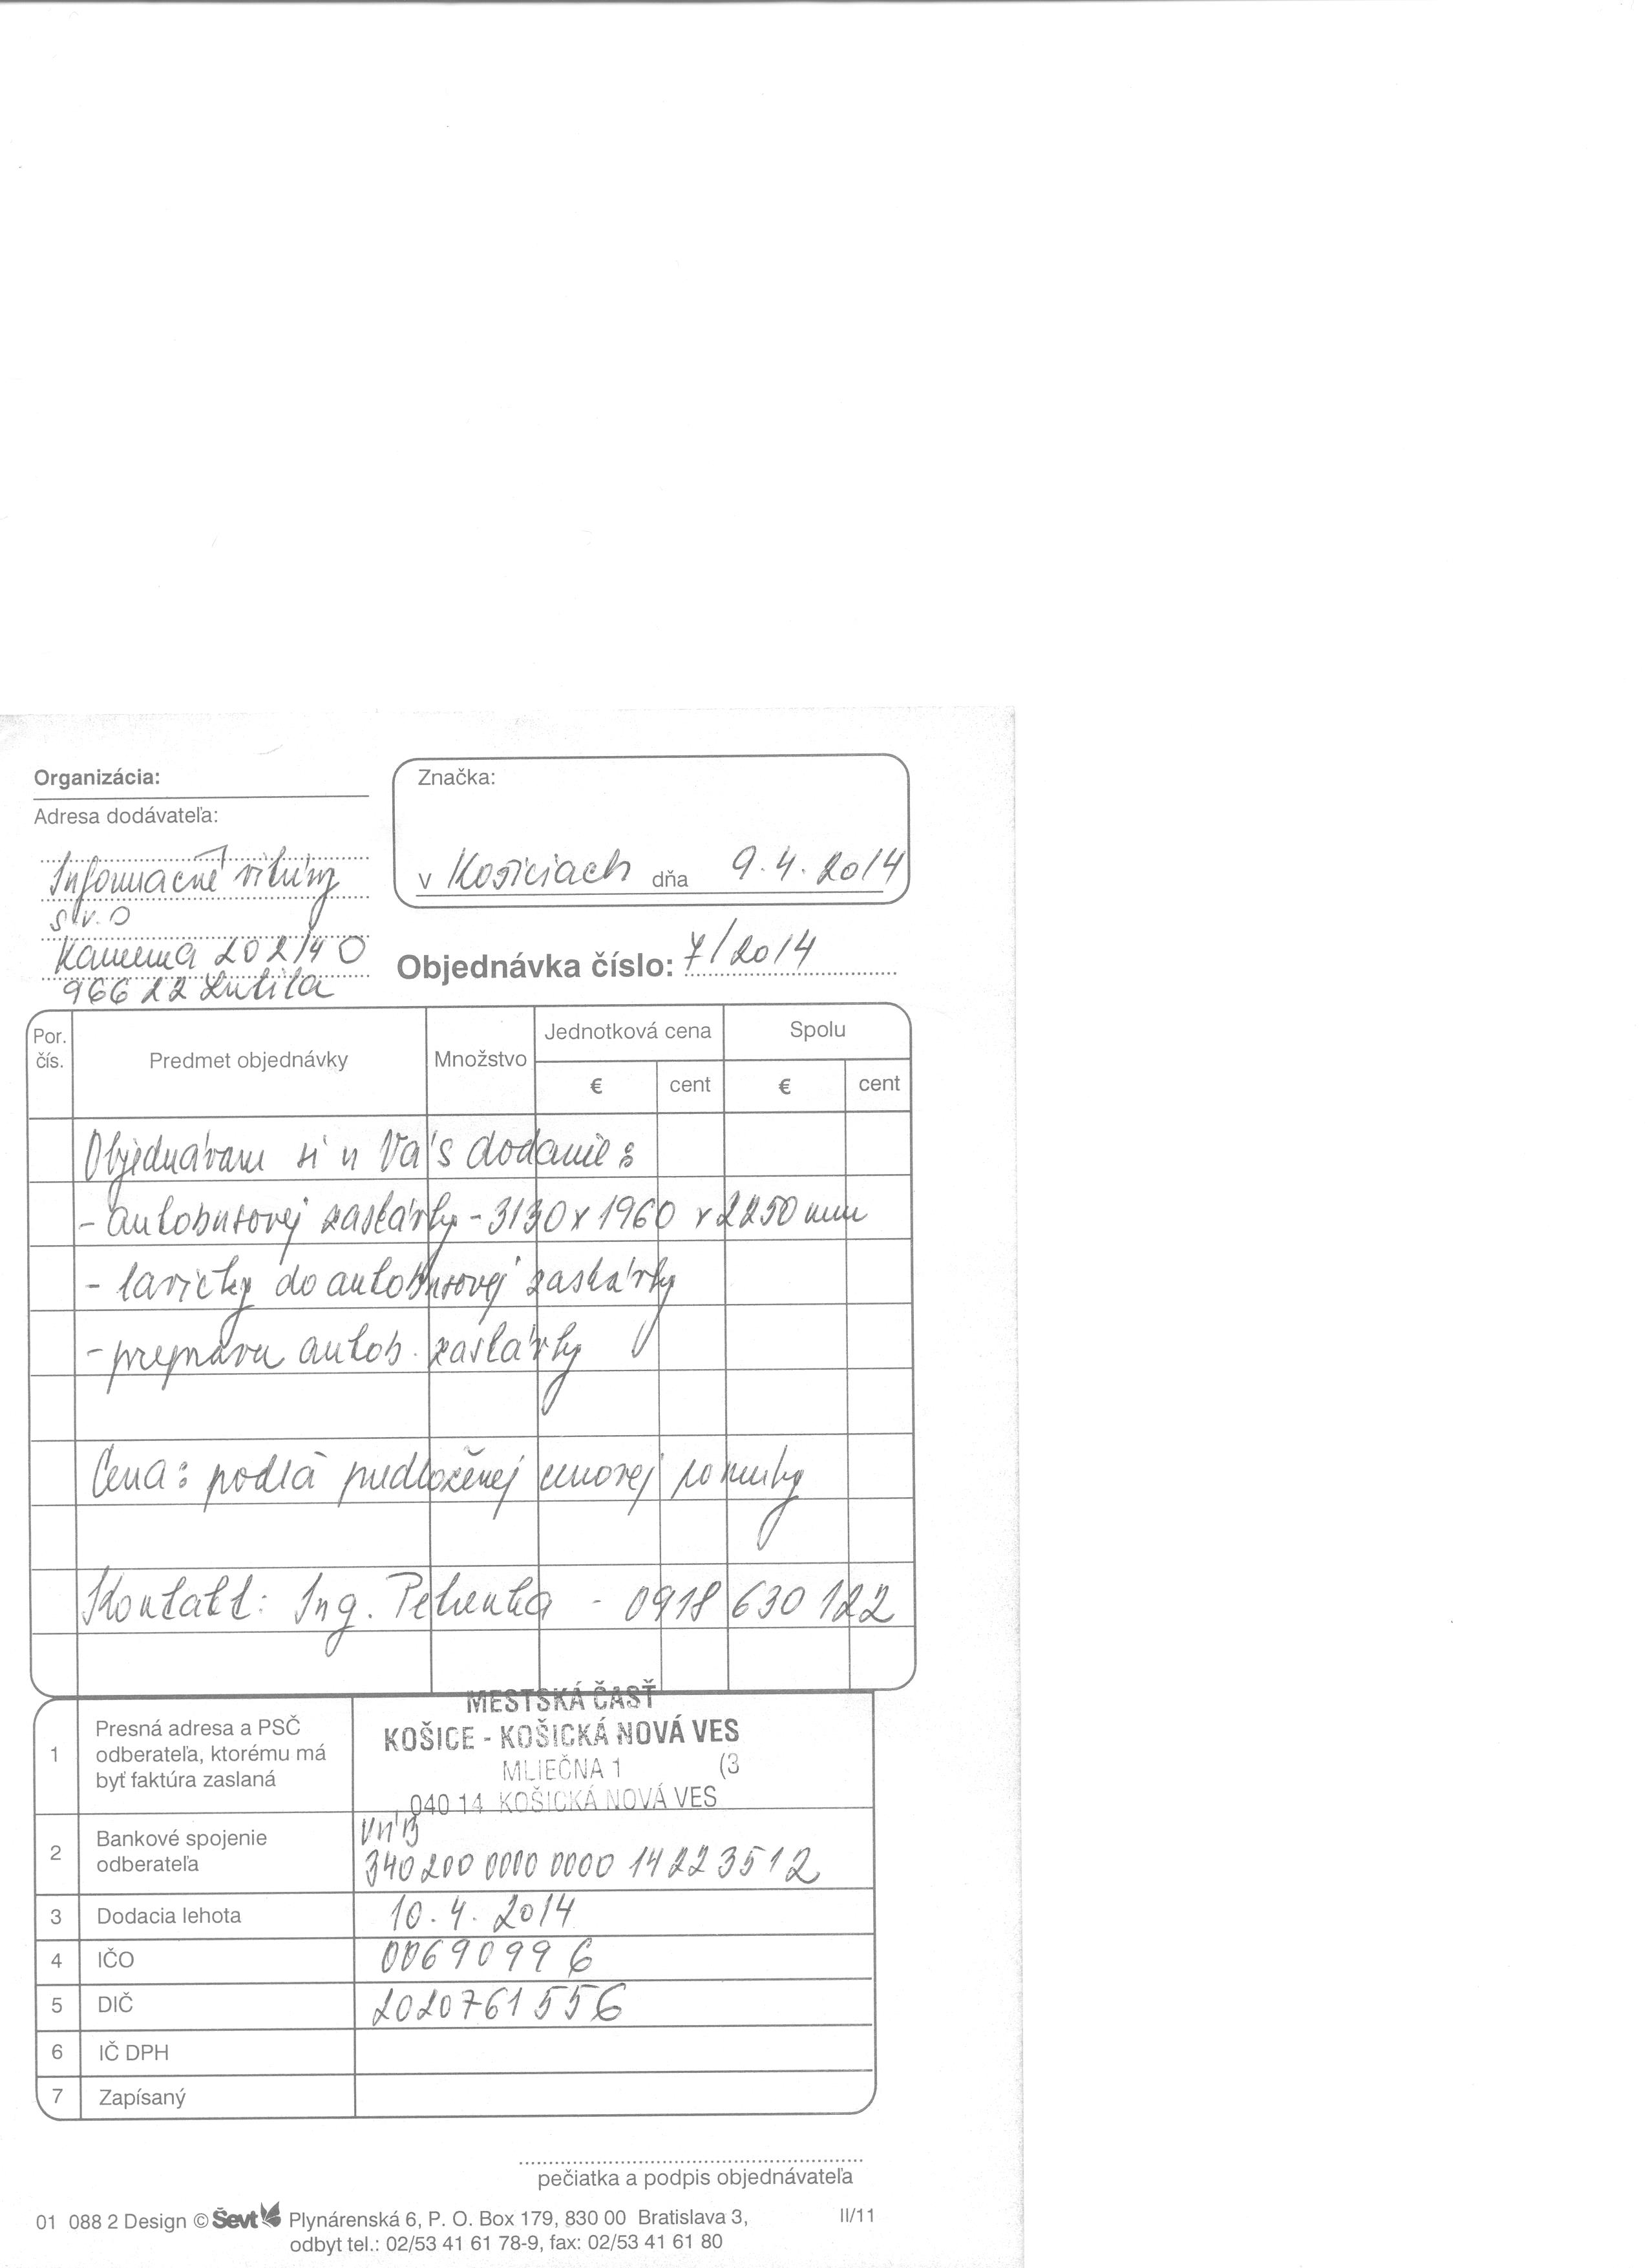 Organizácia:
Adresa dodávateľa:
Informačné vitríny
s.r.o
Kamenná 202/40
966 22 Lutila
Značka:
v Košiciach dňa 9.4.2014
Objednávka číslo: 7/2014
Por. čís. Predmet objednávky Množstvo Jednotková cena Spolu
€ cent € cent
Objednávam si u Vás dodanie:
- autobusovej zastávky - 3130 x 1960 x 2250 mm
- lavičky do autobusovej zastávky
- prepravu autob. zastávky
Cena: podľa predloženej cenovej ponuky
Kontakt: Ing. Petrenka - 0918 630 122
MESTSKÁ ČASŤ
KOŠICE - KOŠICKÁ NOVÁ VES
MLIEČNA 1 (3
040 14 KOŠICKÁ NOVÁ VES
1 Presná adresa a PSČ
odberateľa, ktorému má
byť faktúra zaslaná
2 Bankové spojenie
odberateľa
VÚB
340200 0000 0000 14223512
3 Dodacia lehota 10.4.2014
4 IČO 00690996
5 DIČ 2020761556
6 IČ DPH
7 Zapísaný
pečiatka a podpis objednávateľa
01 088 2 Design © Ševt Plynárenská 6, P. O. Box 179, 830 00 Bratislava 3, II/11
odbyt tel.: 02/53 41 61 78-9, fax: 02/53 41 61 80